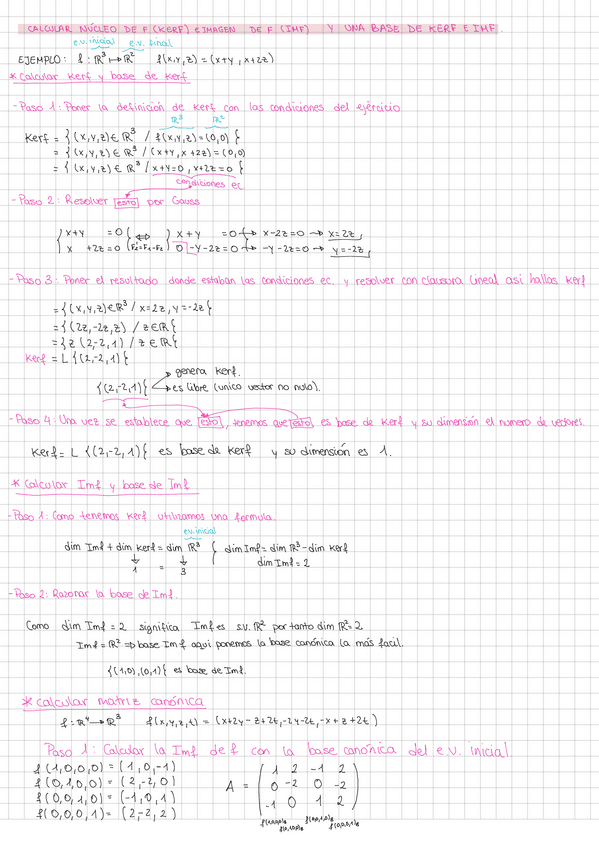 CALCULAR NÚCLEO DE F (KERF) E IMAGEN DE F (IMF) Y UNA BASE DE KERF E IMF
e.v. inicial e.v. final
EJEMPLO: f: ℝ³ ↦ ℝ² f(x,y,z) = (x+y, x+2z)
* Calcular Kerf y base de Kerf
- Paso 1: Poner la definición de Kerf con las condiciones del ejercicio
ℝ³ ℝ²
Kerf = {(x,y,z) ∈ ℝ³ / f(x,y,z) = (0,0)}
= {(x,y,z) ∈ ℝ³ / (x+y, x+2z) = (0,0)
= {(x,y,z) ∈ ℝ³ / x+y=0, x+2z=0}
condiciones ec
- Paso 2: Resolver esto por Gauss
{x+y =0 ⇔ {x+y =0 → x-2z=0 → x=2z,
x +2z=0 (F2'=F1-F2) 0 -y-2z=0 → -y-2z=0 → y=-2z,
- Paso 3: Poner el resultado donde estaban las condiciones ec. y resolver con clausura lineal asi hallas Kerf
= {(x,y,z) ∈ ℝ³ / x=2z, y=-2z}
= {(2z,-2z,z) / z ∈ ℝ}
= {z (2,-2,1) / z ∈ ℝ}
Kerf = L {(2,-2,1)}
genera Kerf.
{(2,-2,1)} es libre (unico vector no nulo).
- Paso 4: Una vez se establece que esto, tenemos que esto es base de Kerf y su dimensión el numero de vectores.
Kerf = L {(2,-2,1)} es base de Kerf y su dimensión es 1.
* Calcular Imf y base de Imf
- Paso 1: Como tenemos Kerf utilizamos una formula.
ev. inicial
dim Imf + dim Kerf = dim ℝ³ { dim Imf = dim ℝ³ - dim Kerf
1 = 3 dim Imf = 2
- Paso 2: Razonar la base de Imf.
Como dim Imf = 2 significa Imf es s.v. ℝ² por tanto dim ℝ² = 2
Imf = ℝ² ⇒ base Imf aqui ponemos la base canónica la más facil.
{(1,0),(0,1)} es base de Imf.
* Calcular matriz canónica
f: ℝ⁴ → ℝ³ f(x,y,z,t) = (x+2y-z+2t, -2y-2t, -x+z+2t)
Paso 1: Calcular la Imf de f con la base canónica del e.v. inicial.
f(1,0,0,0) = (1,0,-1)
f(0,1,0,0) = (2,-2,0)
f(0,0,1,0) = (-1,0,1)
f(0,0,0,1) = (2,-2,2)
A = ( 1 2 -1 2
0 -2 0 -2
-1 0 1 2 )
f(1,0,0,0) f(0,1,0,0) f(0,0,1,0) f(0,0,0,1)